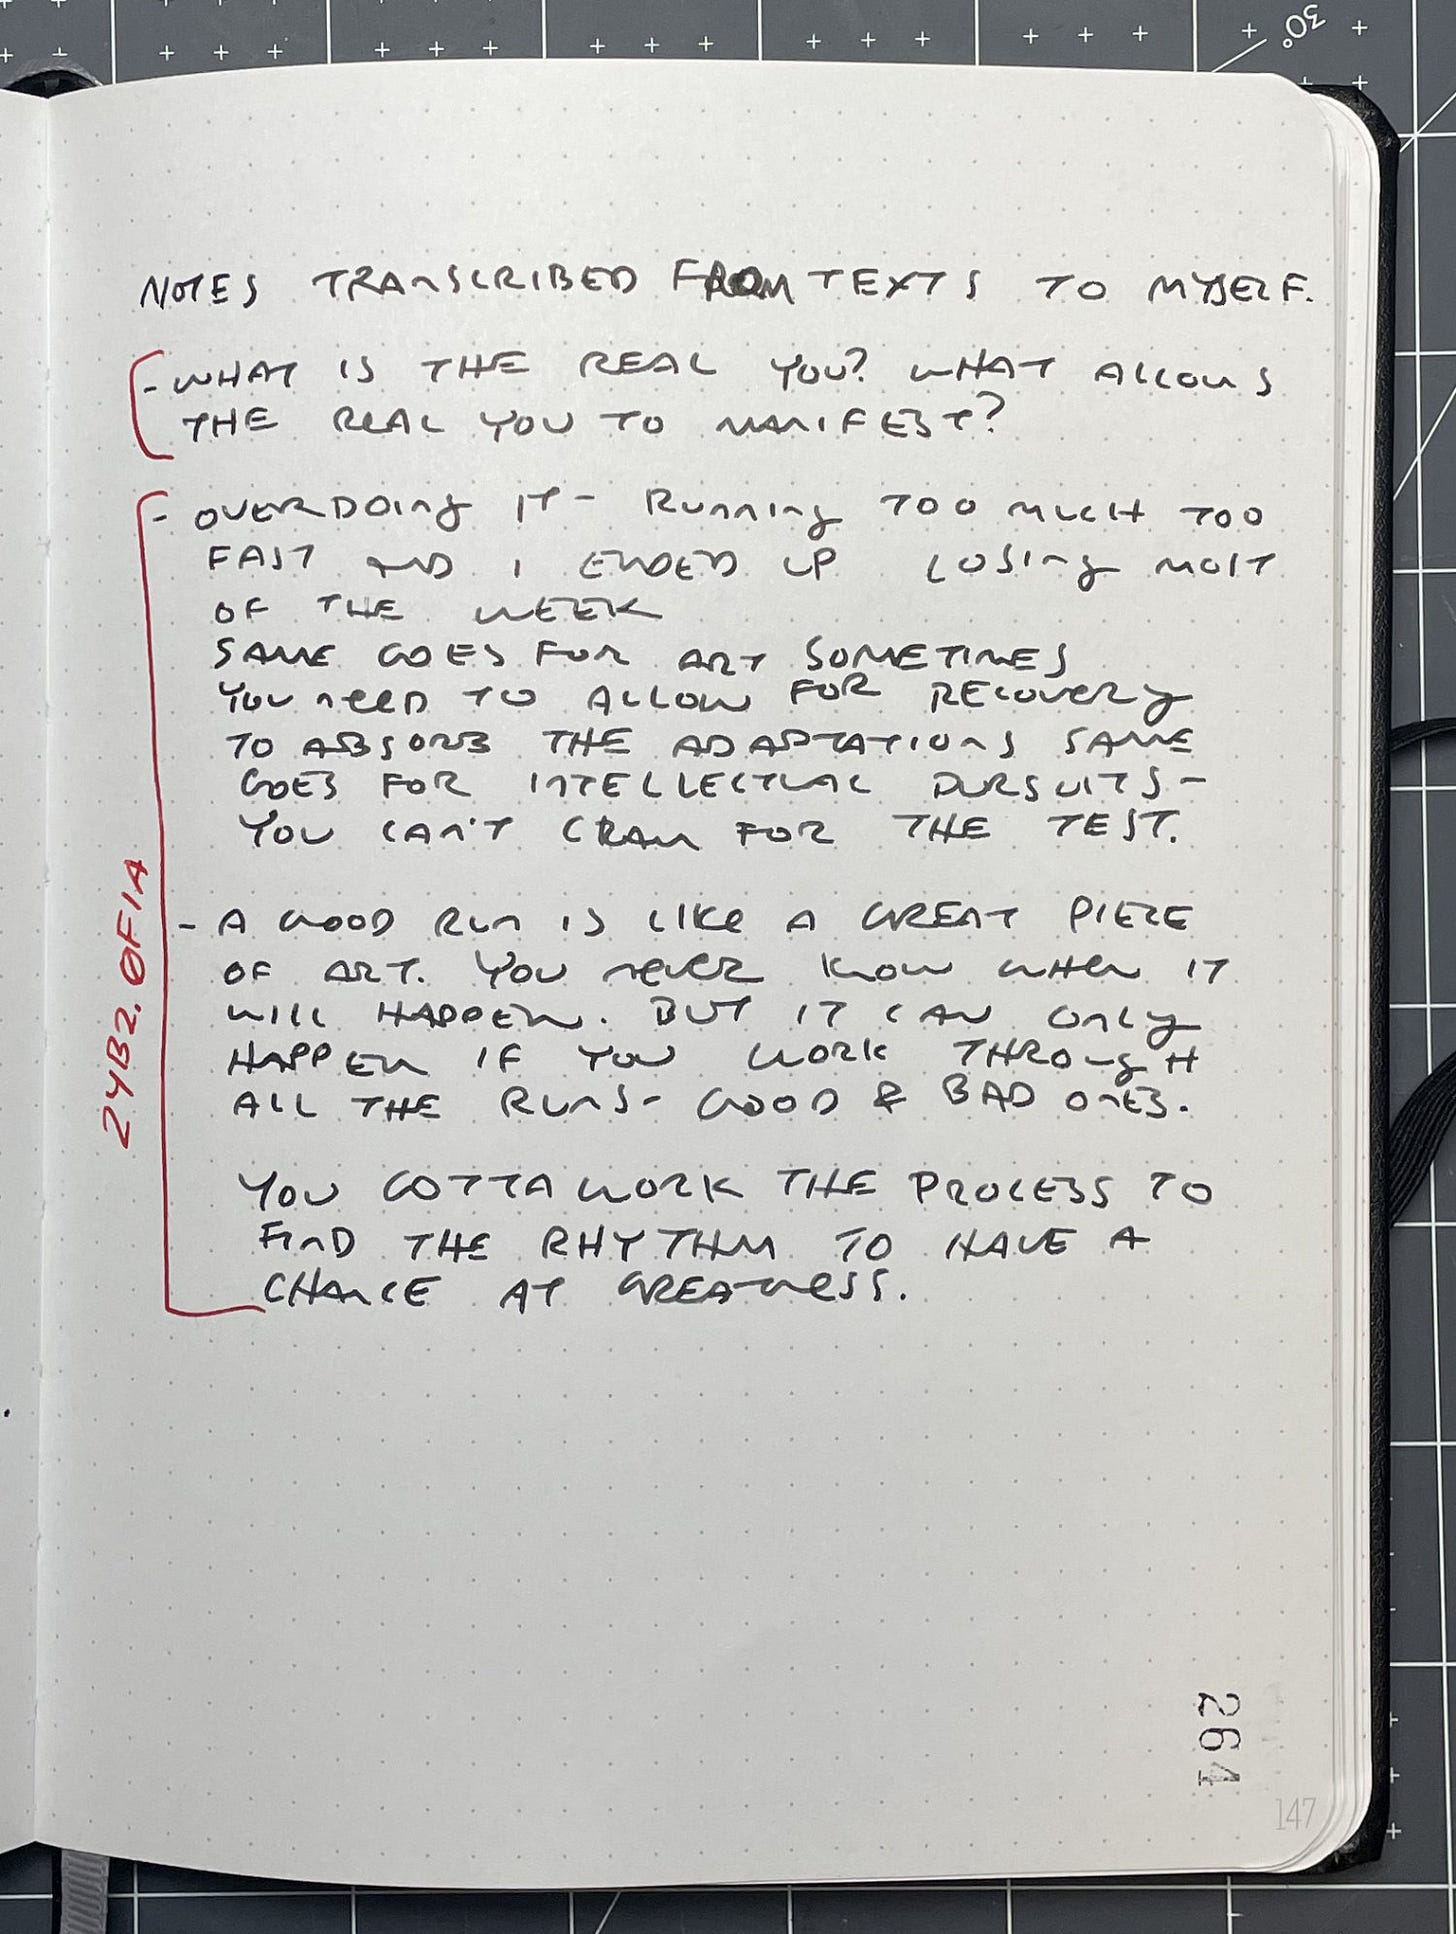 30°
NOTES TRANSCRIBED FROM TEXTS TO MYSELF.
- WHAT IS THE REAL YOU? WHAT ALLOWS
THE REAL YOU TO MANIFEST?
- OVERDOING IT - RUNNING TOO MUCH TOO
FAST AND I ENDED UP LOSING MOST
OF THE WEEK
SAME GOES FOR ART SOMETIMES
YOU NEED TO ALLOW FOR RECOVERY
TO ABSORB THE ADAPTATIONS SAME
GOES FOR INTELLECTUAL PURSUITS -
YOU CAN'T CRAM FOR THE TEST.
- A GOOD RUN IS LIKE A GREAT PIECE
OF ART. YOU NEVER KNOW WHEN IT
WILL HAPPEN. BUT IT CAN ONLY
HAPPEN IF YOU WORK THROUGH
ALL THE RUNS - GOOD & BAD ONES.
YOU GOTTA WORK THE PROCESS TO
FIND THE RHYTHM TO HAVE A
CHANCE AT GREATNESS.
24B2.0F1A
264
147